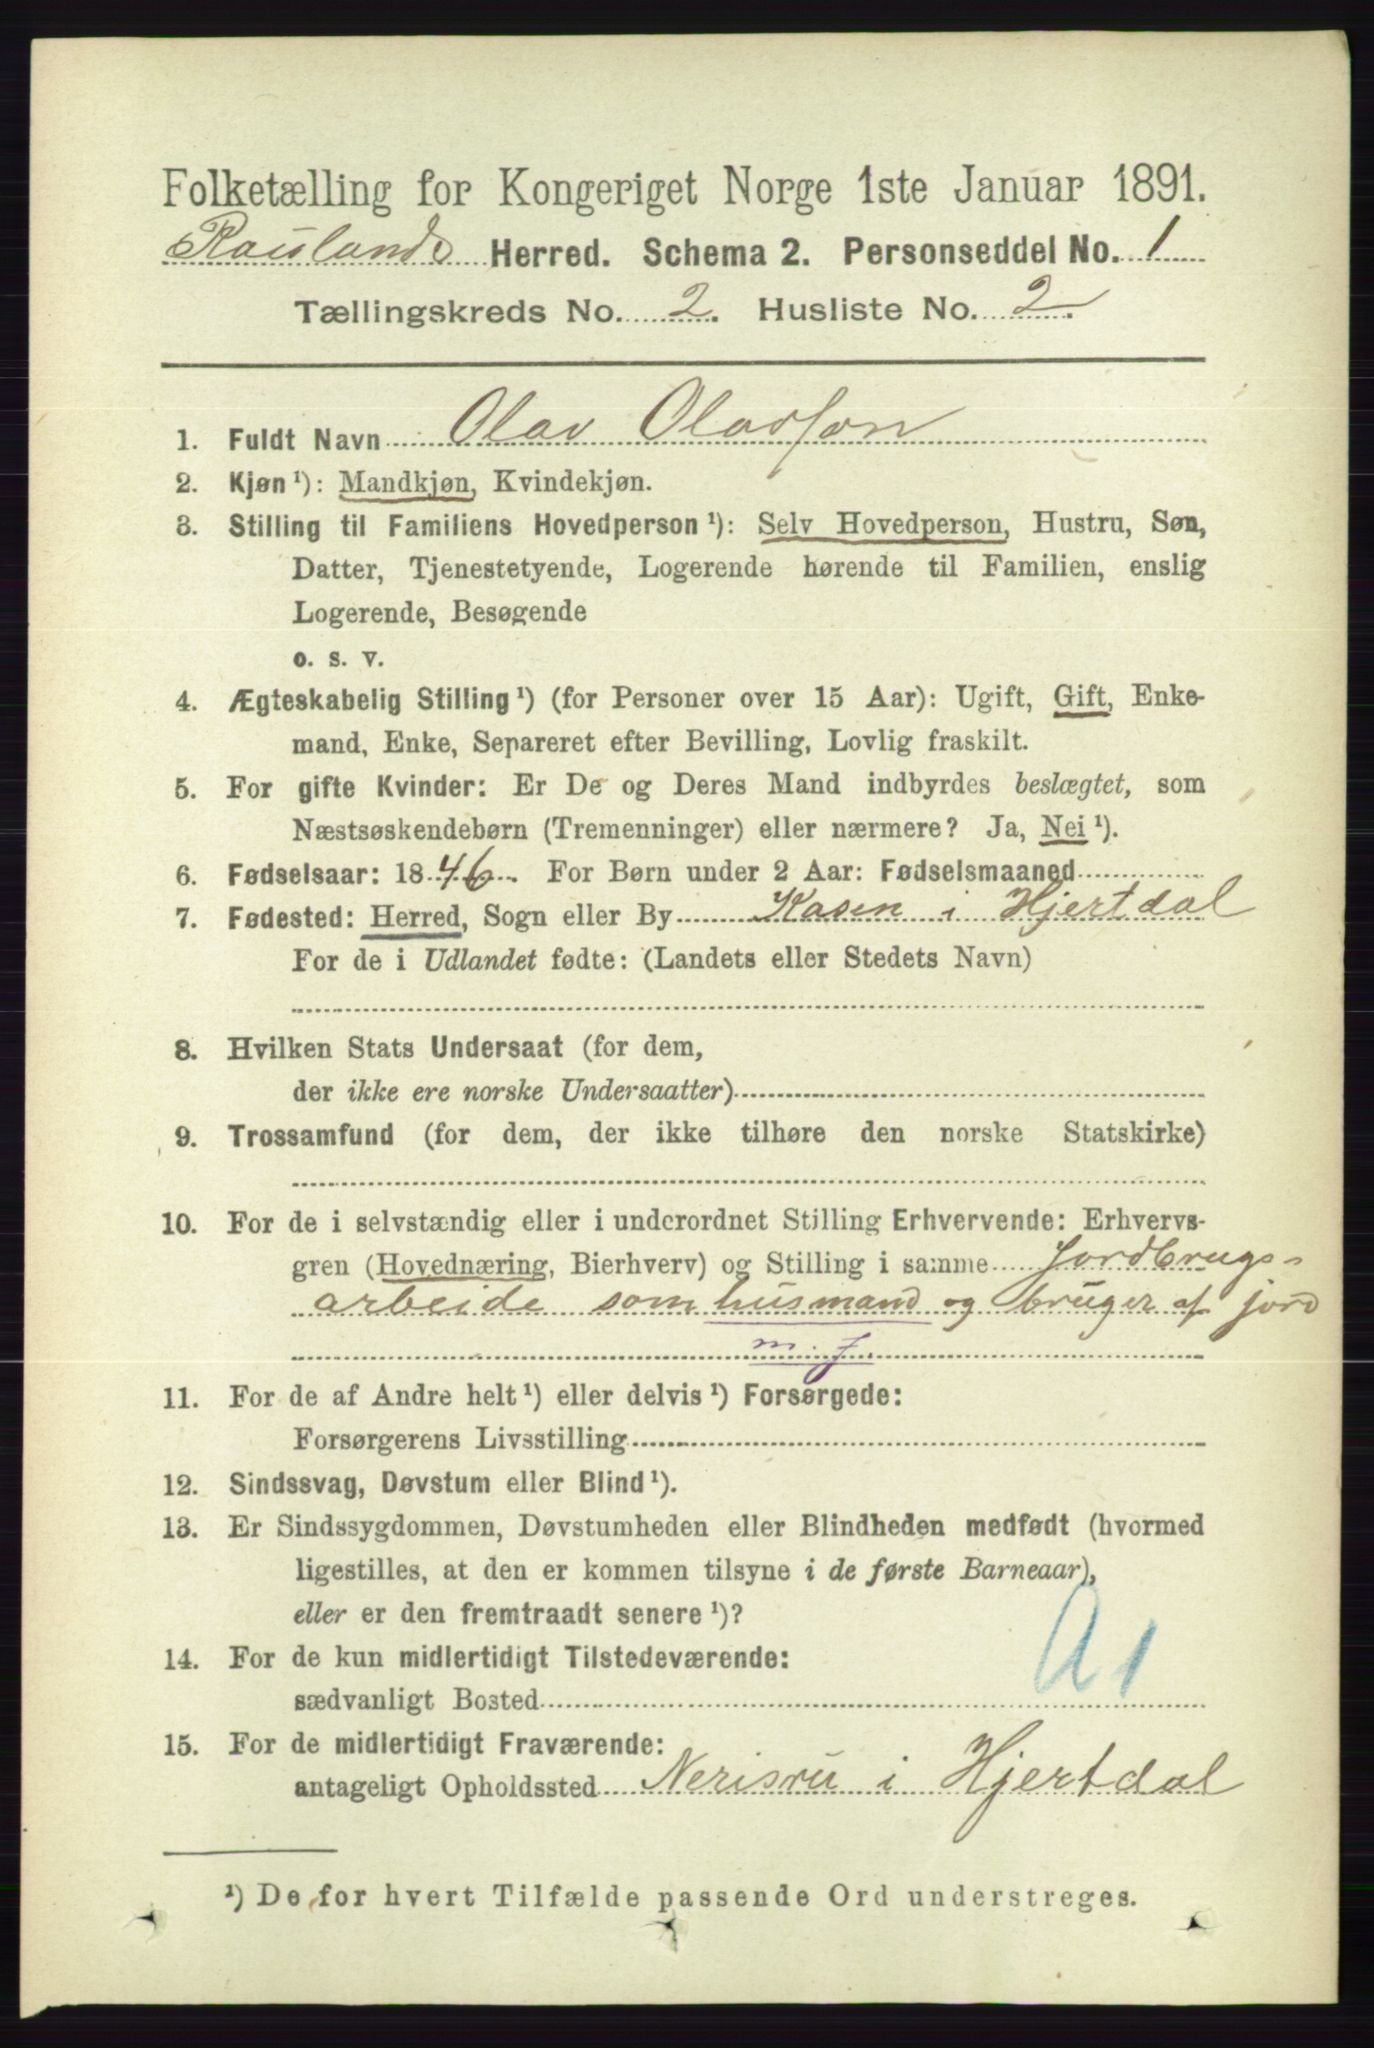 Folketælling for Kongeriget Norge 1ste Januar 1891.
Raulands Herred. Schema 2. Personseddel No. 1
Tællingskreds No. 2. Husliste No. 2.
1. Fuldt Navn Olav Olavson
2. Kjøn ¹): Mandkjøn, Kvindekjøn.
3. Stilling til Familiens Hovedperson ¹): Selv Hovedperson, Hustru, Søn,
Datter, Tjenestetyende, Logerende hørende til Familien, enslig
Logerende, Besøgende
o. s. v.
4. Ægteskabelig Stilling ¹) (for Personer over 15 Aar): Ugift, Gift, Enke-
mand, Enke, Separeret efter Bevilling, Lovlig fraskilt.
5. For gifte Kvinder: Er De og Deres Mand indbyrdes beslægtet, som
Næstsøskendebørn (Tremenninger) eller nærmere? Ja, Nei ¹).
6. Fødselsaar: 1846. For Børn under 2 Aar: Fødselsmaaned
7. Fødested: Herred, Sogn eller By Kasen i Hjertdal
For de i Udlandet fødte: (Landets eller Stedets Navn)
8. Hvilken Stats Undersaat (for dem,
der ikke ere norske Undersaatter)
9. Trossamfund (for dem, der ikke tilhøre den norske Statskirke)
10. For de i selvstændig eller i underordnet Stilling Erhvervende: Erhvervs-
gren (Hovednæring, Bierhverv) og Stilling i samme Jordbrugs-
arbeide som husmand og bruger af jord
m. j.
11. For de af Andre helt ¹) eller delvis ¹) Forsørgede:
Forsørgerens Livsstilling
12. Sindssvag, Døvstum eller Blind ¹).
13. Er Sindssygdommen, Døvstumheden eller Blindheden medfødt (hvormed
ligestilles, at den er kommen tilsyne i de første Barneaar),
eller er den fremtraadt senere ¹)?
14. For de kun midlertidigt Tilstedeværende:
sædvanligt Bosted
A1
15. For de midlertidigt Fraværende:
antageligt Opholdssted Nerisru i Hjertdal
¹) De for hvert Tilfælde passende Ord understreges.